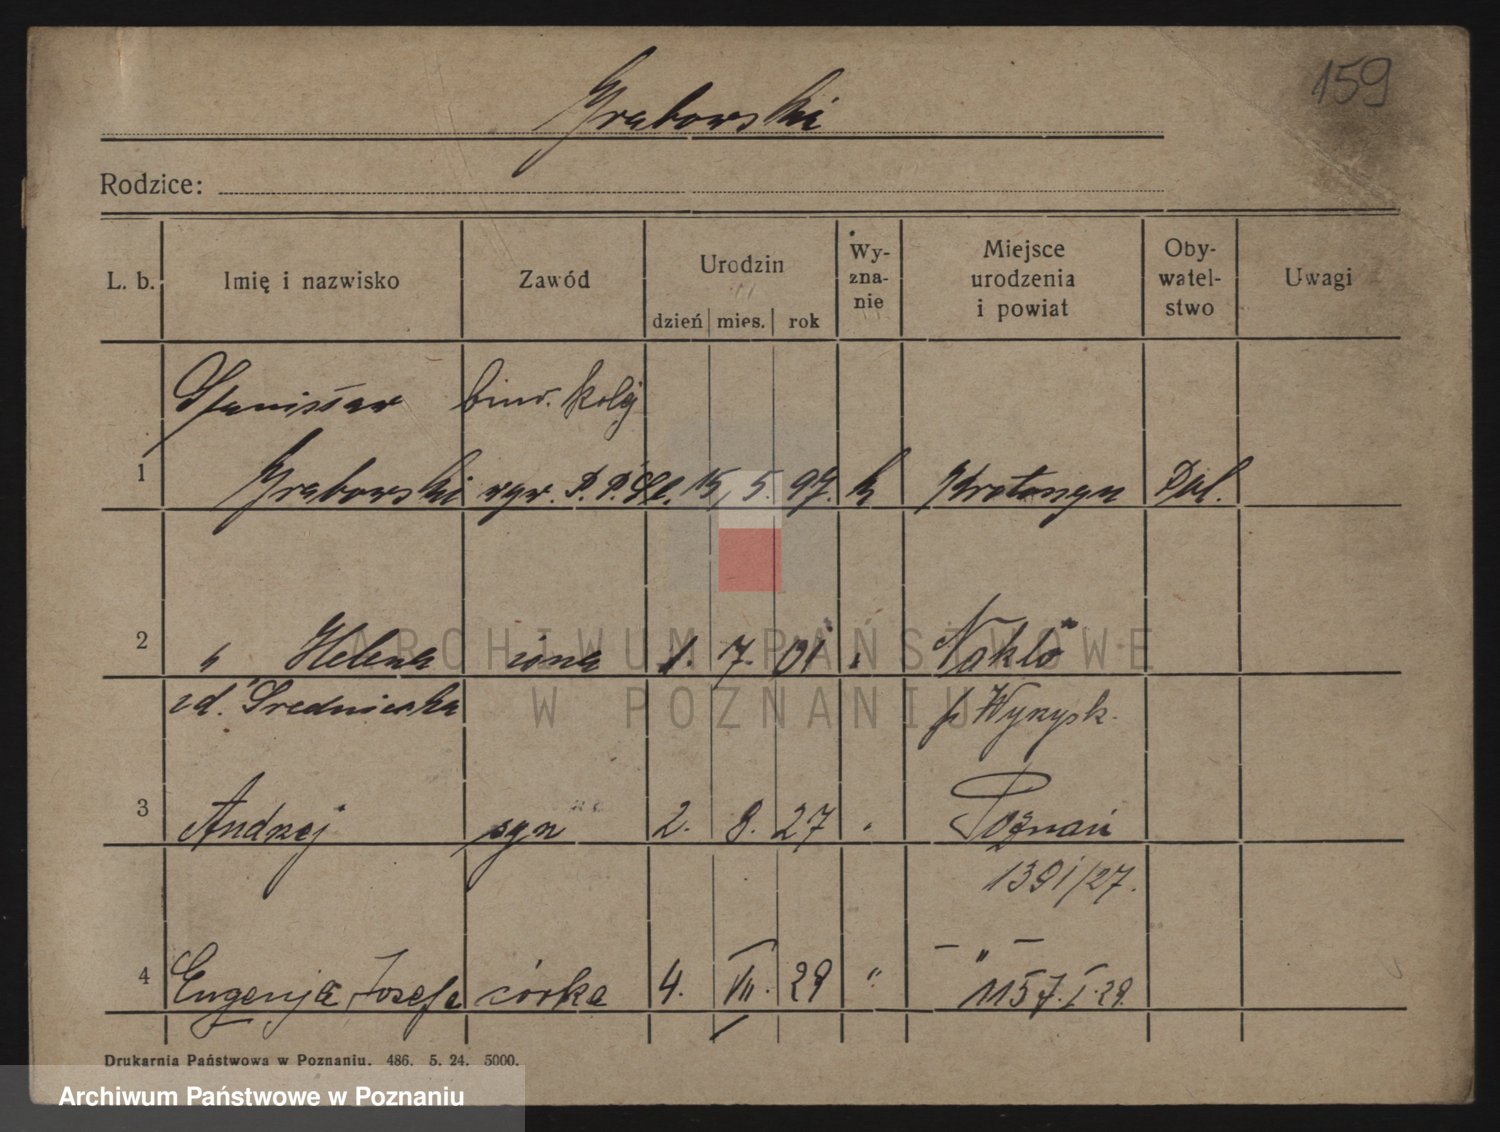 159
Grabowski
Rodzice:
L. b. Imię i nazwisko Zawód Urodzin dzień mies. rok Wy-zna-nie Miejsce urodzenia i powiat Oby-watel-stwo Uwagi
Stanisław biur. kolej
1 Grabowski 15. 5. 97. k Krotoszyn Pol.
2 " Helena żona 1. 7. 01 " Nakło
zd. Średnicka p Wyrzysk.
3 Andrzej syn 2. 8. 27 " Poznań
1391/27.
— " —
4 Eugenja Józefa córka 4. VII. 29 " 1157. I. 29.
Drukarnia Państwowa w Poznaniu. 486. 5. 24. 5000.
ARCHIWUM PAŃSTWOWE
W POZNANIU
Archiwum Państwowe w Poznaniu